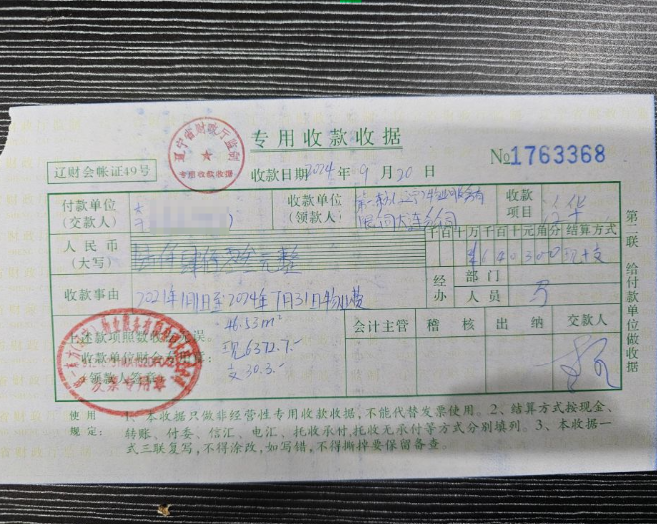 辽宁省财政厅监制
专用收款收据
专用收款收据
辽财会帐证49号
收款日期 2024年 9月 20日
№1763368
付款单位
(交款人)
收款单位
(领款人)
限公司大连分公司
收款
项目
人民币
(大写)
元整
千百十万千百十元角分
结算方式
收款事由
2021年1月1日至2024年7月31日物业费
经办
部门
人员
46.53m²
上述款项照数收讫无误。
现6372.7-
收款单位财会专用章:
支30.3-
(领款人签章)
发票专用章
会计主管
稽核
出纳
交款人
第二联 给付款单位做收据
使用
规定:
1、本收据只做非经营性专用收款收据,不能代替发票使用。2、结算方式按现金、
转账、付委、信汇、电汇、托收承付,托收无承付等方式分别填列。3、本收据一
式三联复写,不得涂改,如写错,不得撕掉要保留备查。